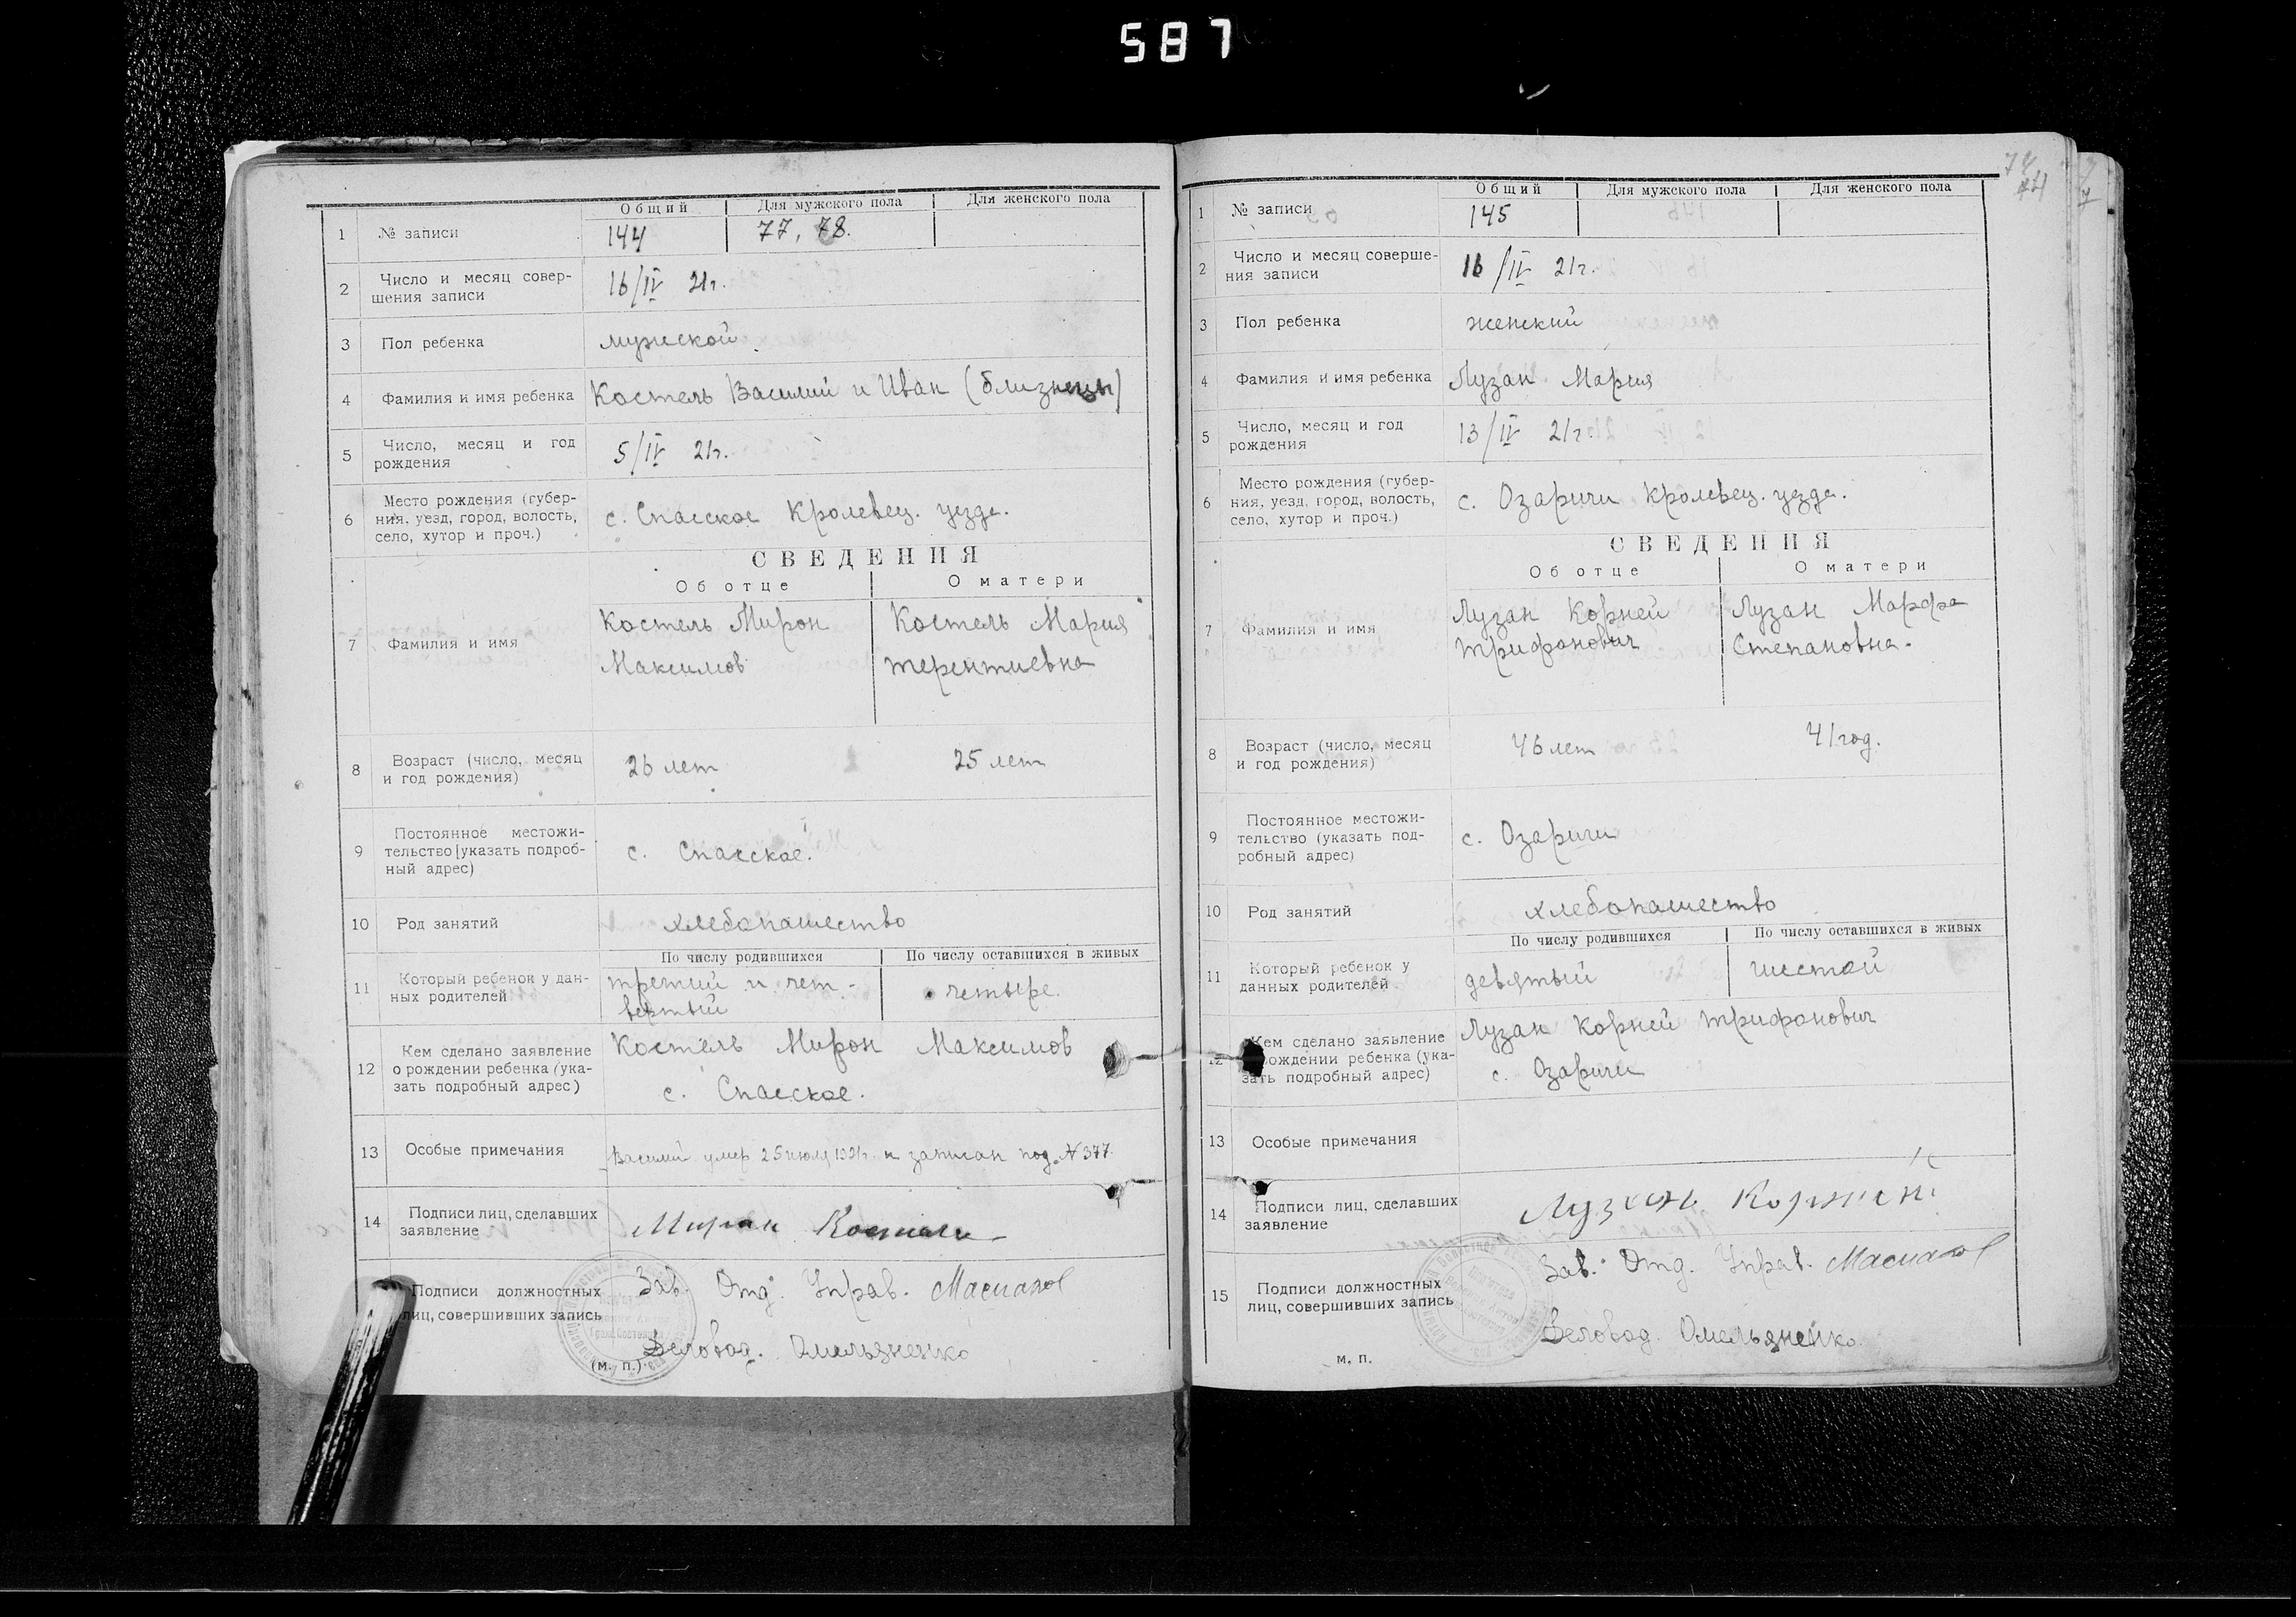 587
Общий Для мужского пола Для женского пола
1 № записи 144 77, 78.
2 Число и месяц совер-
шения записи 16/IV 21г.
3 Пол ребенка мужской
4 Фамилия и имя ребенка Костель Василий и Иван (близнецы)
5 Число, месяц и год
рождения 5/IV 21г.
6 Место рождения (губер-
ния, уезд, город, волость,
село, хутор и проч.) с. Спасское Кролевец. уезда.
СВЕДЕНИЯ
Об отце О матери
7 Фамилия и имя
Костель Мирон Костель Мария
Максимов терентиевна
8 Возраст (число, месяц
и год рождения) 26 лет 25 лет
9 Постоянное местожи-
тельство [указать подроб-
ный адрес) с. Спасское.
10 Род занятий хлебопашество
По числу родившихся По числу оставшихся в живых
11 Который ребенок у дан-
ных родителей
третий и чет- четыре.
вертый
12 Кем сделано заявление
о рождении ребенка (ука-
зать подробный адрес)
Костель Мирон Максимов
с. Спасское.
13 Особые примечания Василий умер 25 июля 1921г. и записан под N 377.
14 Подписи лиц, сделавших
заявление Мирон Костель
Подписи должностных
лиц, совершивших запись
Зав. Отд. Управ.
Деловод. Омельяненко
(м. п.)
74
Общий Для мужского пола Для женского пола
1 № записи 145
2 Число и месяц соверше-
ния записи 16/IV 21г.
3 Пол ребенка женский
4 Фамилия и имя ребенка Лузан Мария
5 Число, месяц и год
рождения 13/IV 21г.
6 Место рождения (губер-
ния, уезд, город, волость,
село, хутор и проч.) с. Озаричи Кролевец. уезда.
СВЕДЕНИЯ
Об отце О матери
7 Фамилия и имя
Лузан Корней Лузан Марфа
Трифонович Степановна.
8 Возраст (число, месяц
и год рождения) 46 лет 41 год.
9 Постоянное местожи-
тельство (указать под-
робный адрес) с. Озаричи
10 Род занятий хлебопашество
По числу родившихся По числу оставшихся в живых
11 Который ребенок у
данных родителей девятый шестой
12 Кем сделано заявление
о рождении ребенка (ука-
зать подробный адрес)
Лузан Корней Трифонович
с. Озаричи
13 Особые примечания
14 Подписи лиц, сделавших
заявление Лузан Корней
15 Подписи должностных
лиц, совершивших запись
Зав. Отд. Управ.
Деловод. Омельяненко.
м. п.